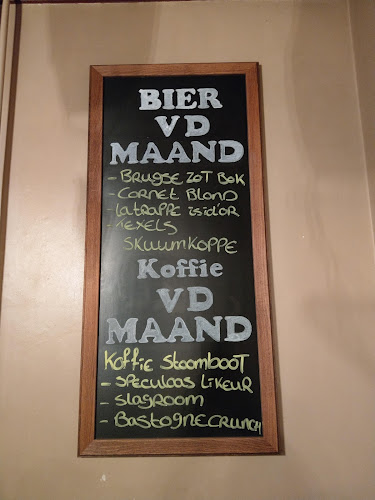 BIER
VD
MAAND
- BRUGSE ZOT BOK
- CORNET BLOND
- latRAPPE isid'OR
- TEXELS
SKUUMKOPPE
Koffie
VD
MAAND
KOffIE StoomBOOT
- SPECULOOS LIKEUR
- SlagROOm
- BastOGNECRUNCH